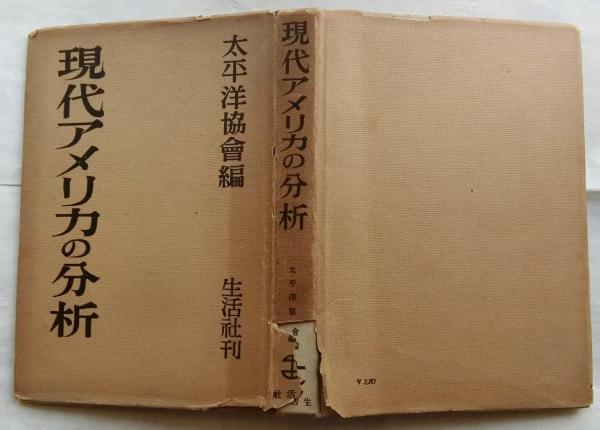 現代アメリカの分析
太平洋協會編
生活社刊
現代アメリカの分析
太平洋協會編
生活社
￥2.80